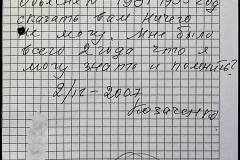 1931-1933 год
сказать вам ничего
не могу. Мне было
всего 2 года что я
могу знать и помнить?
2/IV-2007
Козаченко